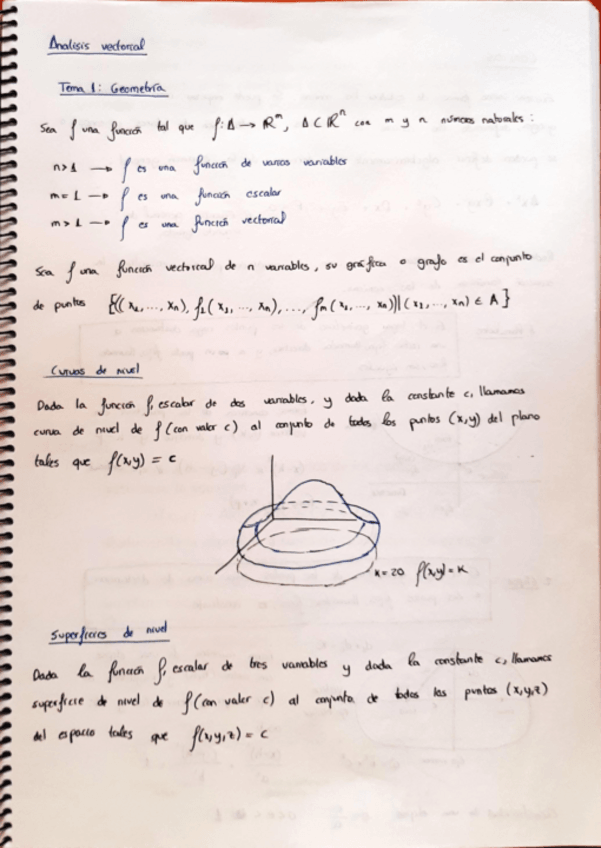 Analisis vectorial
Tema 1: Geometría
Sea f una función tal que f: A → ℝᵐ, A ⊂ ℝⁿ con m y n números naturales:
n > 1 → f es una función de varias variables
m = 1 → f es una función escalar
m > 1 → f es una función vectorial
Sea f una función vectorial de n variables, su gráfica o grafo es el conjunto
de puntos {((x₁, ..., xₙ), f₁(x₁, ..., xₙ), ..., fₘ(x₁, ..., xₙ)) | (x₁, ..., xₙ) ∈ A}
Curvas de nivel
Dada la función f, escalar de dos variables, y dada la constante c, llamamos
curva de nivel de f (con valor c) al conjunto de todos los puntos (x,y) del plano
tales que f(x,y) = c
k = 20 f(x,y) = k
Superficies de nivel
Dada la función f, escalar de tres variables y dada la constante c, llamamos
superficie de nivel de f (con valor c) al conjunto de todos los puntos (x,y,z)
del espacio tales que f(x,y,z) = c